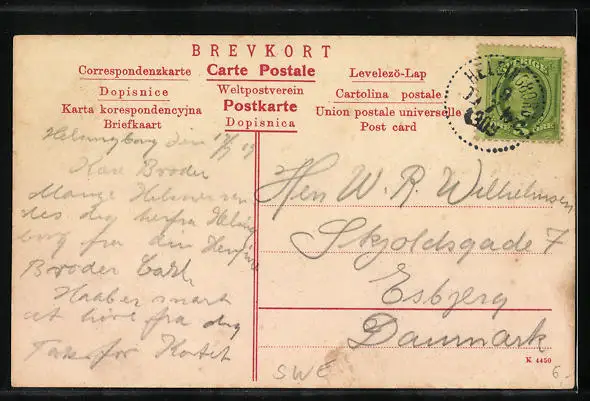 BREVKORT
Correspondenzkarte Carte Postale Levelező-Lap
Dopisnice Weltpostverein Cartolina postale
Karta korespondencyjna Postkarte Union postale universelle
Briefkaart Dopisnica Post card
SVERIGE
ÖRE
Helsingborg den
Kære Broder
Mange Hilsner
des dig herfra Helsing
borg fra din
Broder Carl
Haaber snart
at høre fra dig
Tak for Kortet
Herr W. R. Wilhelmsen
Skjoldsgade 7
Esbjerg
Danmark
K 4450
SWE
6,-